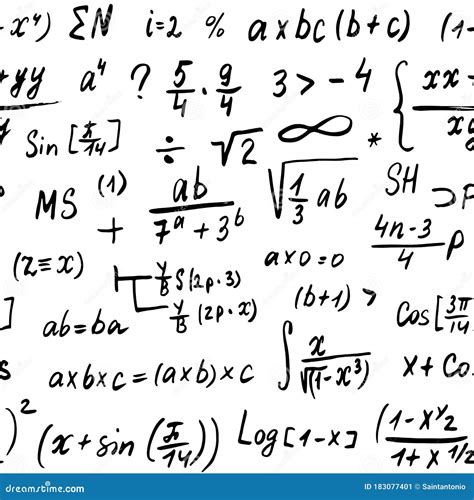 - x⁴) ΣN i=2 % axbc(b+c) (1-
+yy a⁴ ? 5/4 · 9/4 3 > -4 { xx
Sin [π/14] ÷ √2 ∞ *
MS (1) + ab/(7ᵃ+3ᵇ) √(1/3 ab) SH ⊃P
(z≡x) a×0=0 (4n-3)/4 P
ab=ba Y/B S(2p·3) Y/B (2p·x) (b+1) > Cos[3π/14
a×b×c=(a×b)×c ∫ x/√(1-x³) x+Co
)² (x+sin(π/14)) Log[1-x] (1-x^y2/1+x^1/2
dreamstime.com
ID 183077401 © Saintantonio